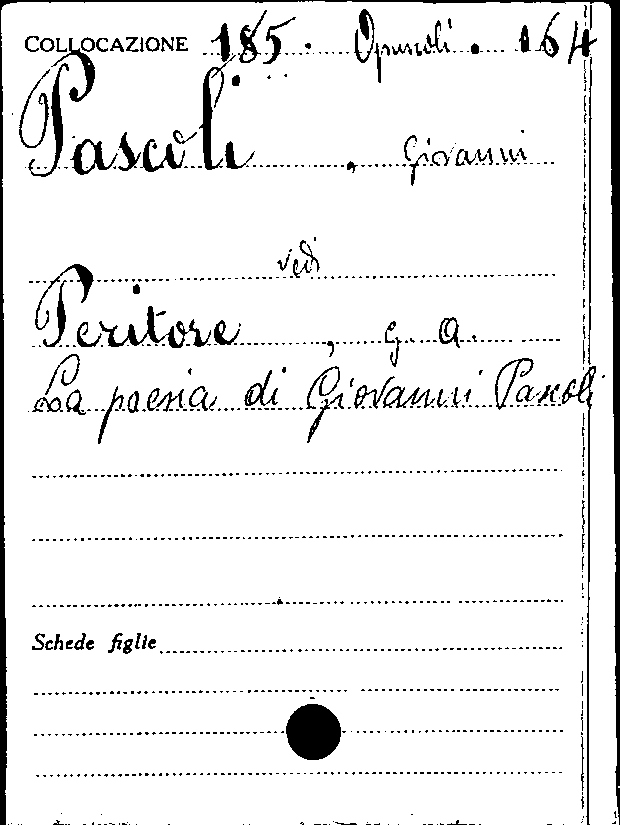 COLLOCAZIONE 185. Opuscoli. 164
Pascoli, Giovanni
vedi
Peritore, G. A.
La poesia di Giovanni Pascoli
Schede figlie